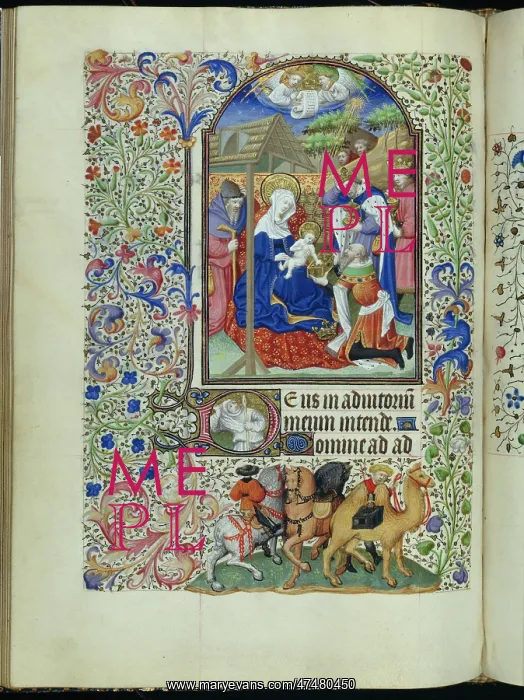 ME
PL
Eus in adiutoriū
meum intende.
omine ad ad
ME
PL
www.maryevans.com/47480450